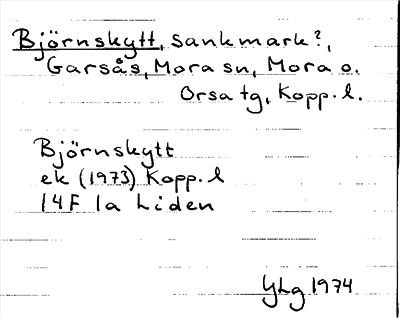 Björnskytt, sankmark?,
Garsås, Mora sn, Mora o.
Orsa tg, Kopp. l.
Björnskytt
ek (1973) Kopp. l
14F 1a Liden
YLg 1974